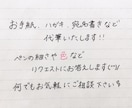 お手紙、ハガキ、宛名書きなど
代筆いたします!!
ペンの細さや色など
リクエストにお答えします(^^)
何でもお気軽にご相談下さい